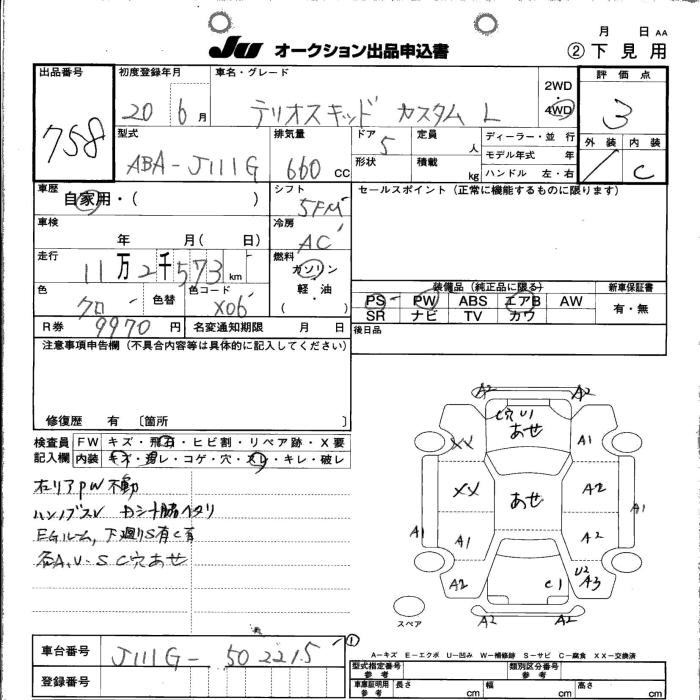 月 日 AA
JU オークション出品申込書 ② 下見用
出品番号 758
初度登録年月 20 6月
車名・グレード テリオスキッド カスタム L
2WD
4WD
評価点 3
型式 ABA-J111G
排気量 660 CC
ドア 5 定員 人
形状 積載 kg
ディーラー・並行
モデル年式 年
ハンドル 左・右
外装 内装 C
車歴 自家用・( )
シフト 5FM
セールスポイント (正常に機能するものに限ります)
車検 年 月( 日)
冷房 AC
走行 11万2千573 km
燃料 ガソリン
軽・油
( )
色 クロ 色替 色コード X06
装備品 (純正品に限る) 新車保証書
PS PW ABS エアB AW 有・無
SR ナビ TV カワ
R券 9970 円 名変通知期限 月 日
後日品
注意事項申告欄 (不具合内容等は具体的に記入してください)
修復歴 有 [箇所 ]
検査員 FW キズ・飛石・ヒビ割・リペア跡・X要
記入欄 内装 キズ・汚レ・コゲ・穴・スレ・キレ・破レ
右リアPW不動
EGルーム, 下廻りS有C有
各A.U.S.C穴あせ
A2 A2
C穴 U1
あせ
XX A1
XX あせ A2
A1 A1 A2 A1
A2 C1 U2 A3
A2 A2
スペア
車台番号 J111G-502215
①
A-キズ E-エクボ U-凹み W-補修跡 S-サビ C-腐食 XX-交換済
型式指定番号 参考 類別区分番号 参考
登録番号
車庫証明用 参考 長さ cm 幅 cm 高さ cm